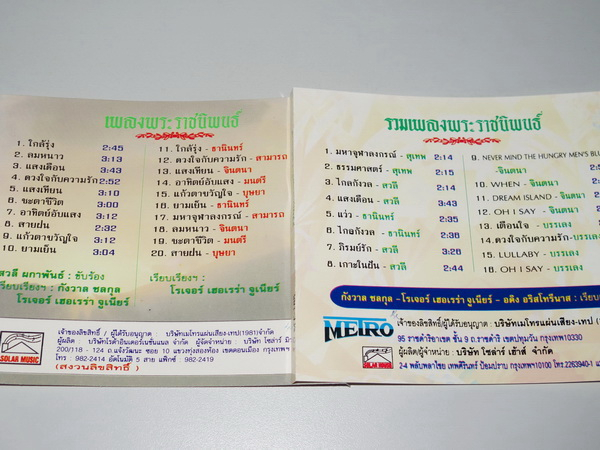 เพลงพระราชนิพนธ์
1. ใกล้รุ่ง 2:45
2. ลมหนาว 3:13
3. แสงเดือน 3:43
4. ดวงใจกับความรัก 2:52
5. แสงเทียน 3:10
6. ชะตาชีวิต 3:00
7. อาทิตย์อับแสง 3:12
8. สายฝน 2:32
9. แก้วตาขวัญใจ 3:12
10. ยามเย็น 3:04
11. ใกล้รุ่ง - ธานินทร์
12. ดวงใจกับความรัก - สามารถ
13. แสงเทียน - จินตนา
14. อาทิตย์อับแสง - มนตรี
15. แก้วตาขวัญใจ - บุษยา
16. ยามเย็น - ธานินทร์
17. มหาจุฬาลงกรณ์ - สามารถ
18. ลมหนาว - จินตนา
19. ชะตาชีวิต - มนตรี
20. สายฝน - บุษยา
สวลี ผกาพันธ์ : ขับร้อง
เรียบเรียงฯ : กังวาล ชลกุล
โรเจอร์ เฮอเรร่า จูเนียร์
เรียบเรียงฯ :
โรเจอร์ เฮอเรร่า จูเนียร์
SOLAR MUSIC
เจ้าของลิขสิทธิ์ / ผู้ได้รับอนุญาต : บริษัทเมโทรแผ่นเสียง-เทป(1981)จำกัด
ผู้ผลิต : บริษัทโรต้าอินเตอร์เนชั่นแนล จำกัด ผู้จัดจำหน่าย : บริษัท โซล่าร์
200/118 - 124 ถ.แจ้งวัฒนะ ซอย 10 แขวงทุ่งสองห้อง เขตดอนเมือง กรุงเทพฯ
โทร : 982-2414 อัตโนมัติ 5 สาย แฟ็กซ์ : 982-2419
(สงวนลิขสิทธิ์)
รวมเพลงพระราชนิพนธ์
1. มหาจุฬาลงกรณ์ - สุเทพ 2:14
2. ธรรมศาสตร์ - สุเทพ 2:15
3. ไกลกังวล - สวลี 2:14
4. แสงเดือน - สวลี 3:43
5. แว่ว - ธานินทร์ 2:35
6. ไกลกังวล - ธานินทร์ 2:36
7. ภิรมย์รัก - สวลี 3:28
8. เกาะในฝัน - สวลี 2:44
9. NEVER MIND THE HUNGRY MEN'S BLU
- จินตนา
10. WHEN - จินตนา
11. DREAM ISLAND - จินตนา
12. OH I SAY - จินตนา
13. เตือนใจ - บรรเลง
14. ดวงใจกับความรัก - บรรเลง
15. LULLABY - บรรเลง
16. OH I SAY - บรรเลง
กังวาล ชลกุล - โรเจอร์ เฮอเรร่า จูเนียร์ - อดิง อริสโทรีนาส : เรียบ
METRO
เจ้าของลิขสิทธิ์/ผู้ได้รับอนุญาต : บริษัทเมโทรแผ่นเสียง-เทป
95 ราชดำริอาเขต ชั้น 9 ถ.ราชดำริ เขตปทุมวัน กรุงเทพ10330
SOLAR HOUSE
ผู้ผลิต/ผู้จำหน่าย : บริษัท โซล่าร์ เฮ้าส์ จำกัด
2-4 พลับพลาไชย เทพศิรินทร์ ป้อมปราบ กรุงเทพฯ10100 โทร.2263940-1